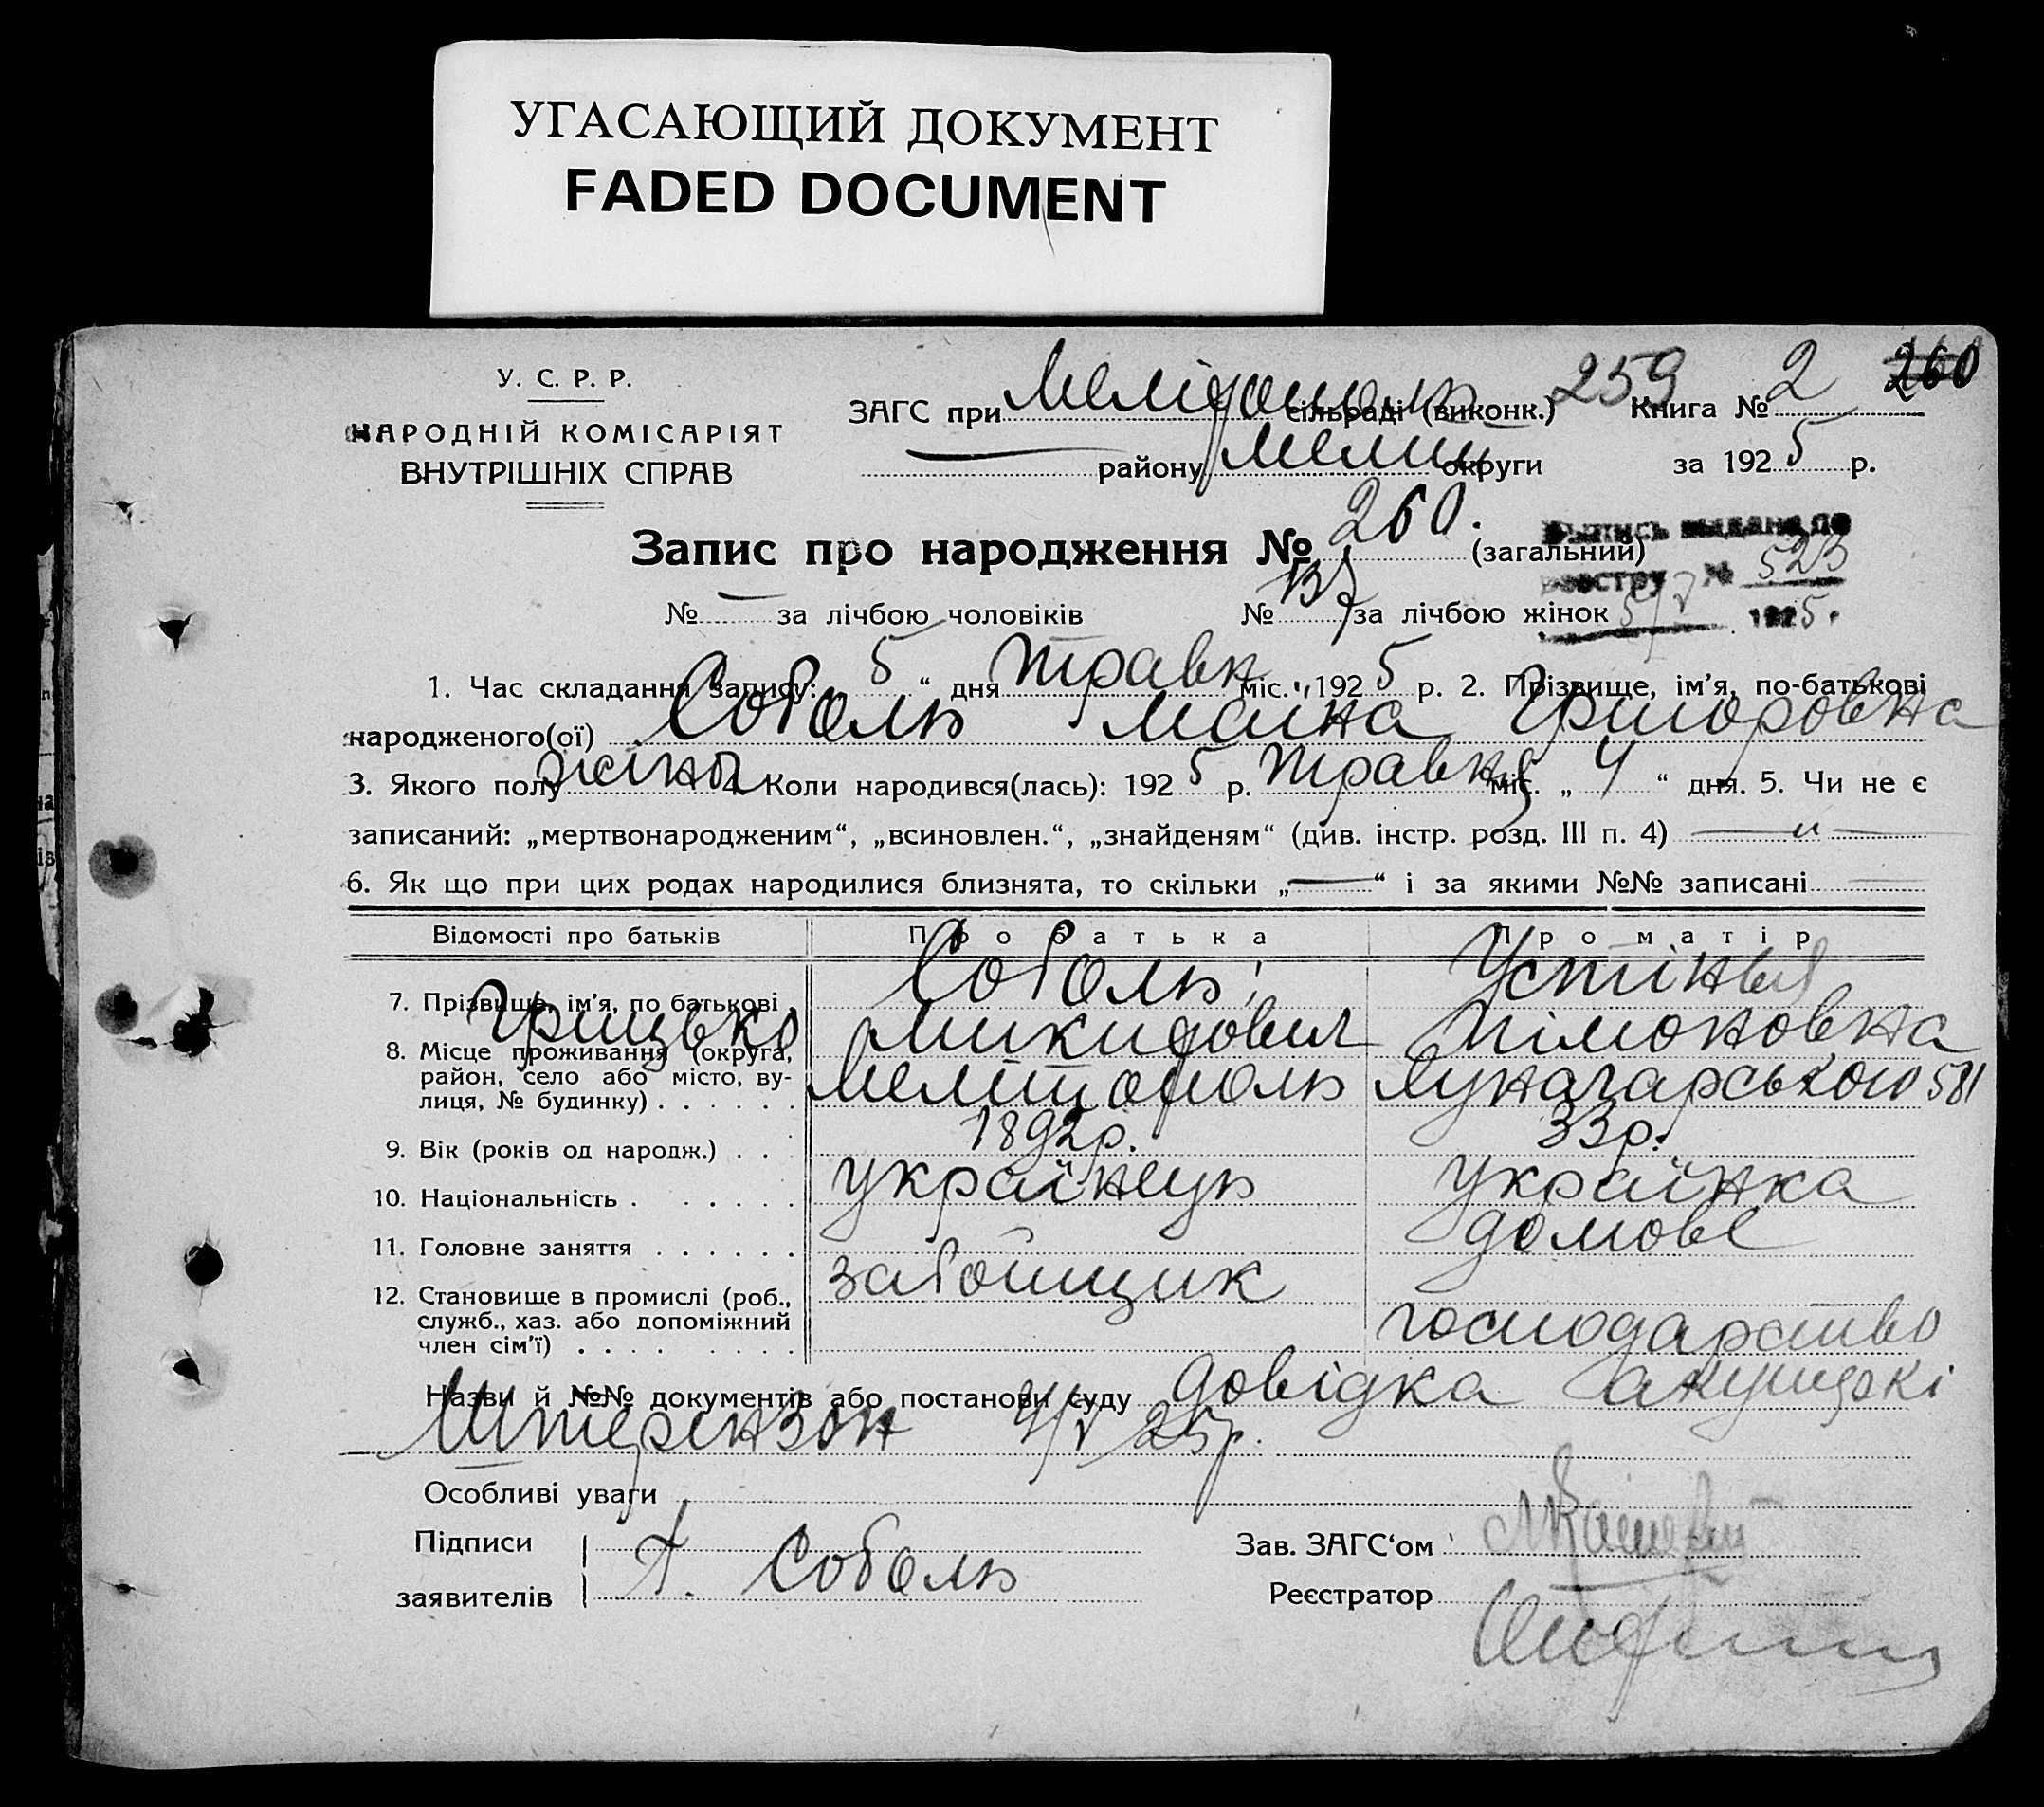 УГАСАЮЩИЙ ДОКУМЕНТ
FADED DOCUMENT
У. С. Р. Р.
НАРОДНІЙ КОМІСАРІЯТ
ВНУТРІШНІХ СПРАВ
259 260
ЗАГС при Мелітополь сільраді (виконк.) Книга № 2
— району Мелит округи за 1925 р.
Запис про народження № 260. (загальний)
Выпись выдана по
реестру № 523
5/V 1925.
№ — за лічбою чоловіків № 137 за лічбою жінок
1. Час складання запису: „5“ дня травн міс. 1925 р. 2. Прізвище, ім’я, по-батькові
народженого(ої) Соболь Маїна Григоровна
3. Якого полу жіноч 4. Коли народився(лась): 1925 р. травня міс. „4“ дня. 5. Чи не є
записаний: „мертвонародженим“, „всиновлен.“, „знайденям“ (див. інстр. розд. III п. 4) — „ —
6. Як що при цих родах народилися близнята, то скільки „—“ і за якими №№ записані —
Відомості про батьків Про батька Про матір
7. Прізвище, ім’я, по батькові Соболь Устінья
Грицько Микидович Пімоновна
8. Місце проживання (округа,
район, село або місто, ву-
лиця, № будинку) . . . . . . Мелітополь Луначарського 581
9. Вік (років од народж.) . . . 1892р. 33р.
10. Національність . . . . . . українець українка
11. Головне заняття . . . . . . забойщик домове
12. Становище в промислі (роб.,
служб., хаз. або допоміжний
член сім’ї) . . . . . . . . господарство
Назви й №№ документів або постанови суду довідка акушеркі
Штерензон 4/V 25р.
Особливі уваги
Підписи
заявителів Г. Соболь
Зав. ЗАГС‘ом
Реєстратор